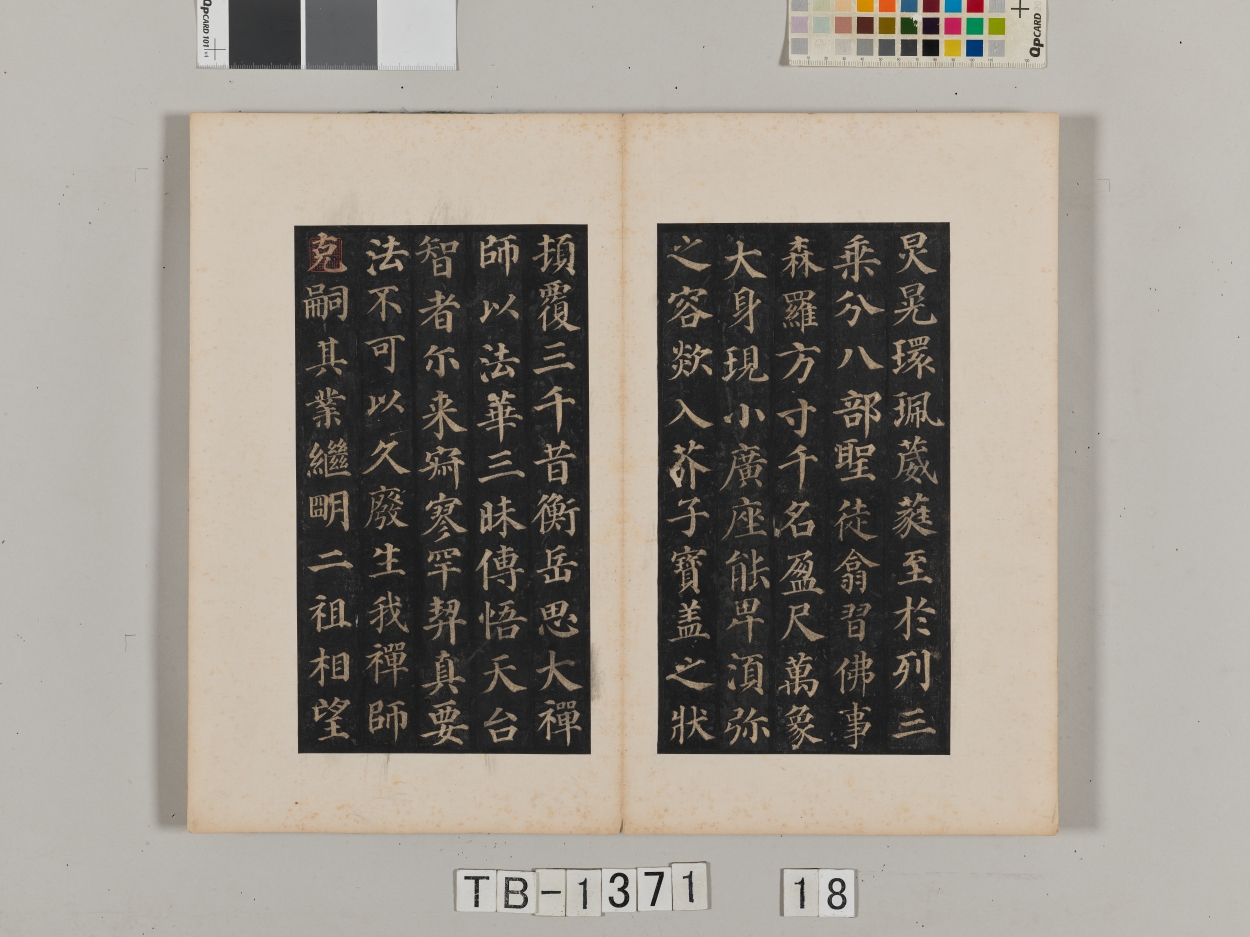 QpCARD 101
QpCARD 20
炅晃環珮葳蕤至於列三
乘分八部聖徒翕習佛事
森羅方寸千名盈尺萬象
大身現小廣座能卑湏弥
之容欻入芥子寶盖之狀
頓覆三千昔衡岳思大禪
師以法華三昧傳悟天台
智者尔来寂寥罕契真要
法不可以久廢生我禪師
克嗣其業繼明二祖相望
TB-1371 18